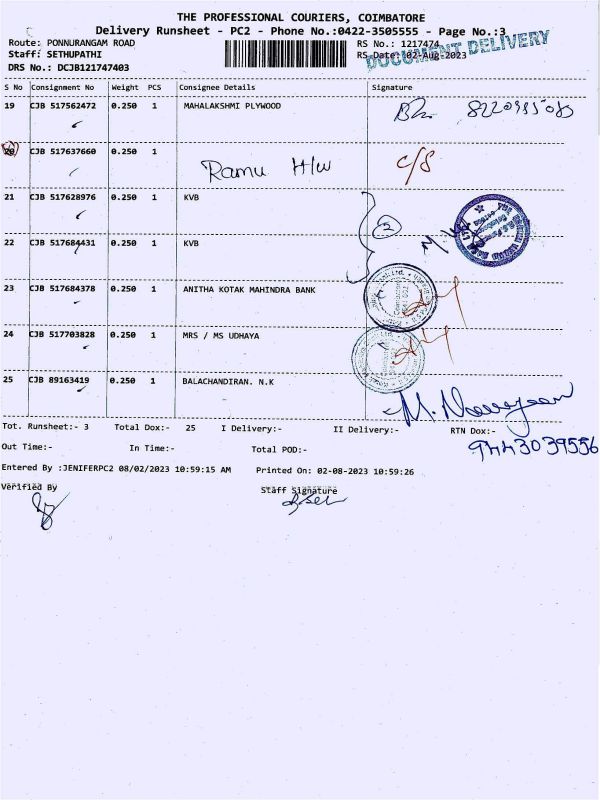 THE PROFESSIONAL COURIERS, COIMBATORE
Delivery Runsheet - PC2 - Phone No.:0422-3505555 - Page No.:3
Route: PONNURANGAM ROAD
RS No.: 1217474
DOCUMENT DELIVERY
Staff: SETHUPATHI
RS Date: 02-Aug-2023
DRS No.: DCJB121747403
S No Consignment No Weight PCS Consignee Details Signature
19 CJB 517562472 0.250 1 MAHALAKSHMI PLYWOOD
20 CJB 517637660 0.250 1
Ramu H/W C/S
21 CJB 517628976 0.250 1 KVB
2
22 CJB 517684431 0.250 1 KVB
23 CJB 517684378 0.250 1 ANITHA KOTAK MAHINDRA BANK
24 CJB 517703828 0.250 1 MRS / MS UDHAYA
25 CJB 89163419 0.250 1 BALACHANDIRAN. N.K
Tot. Runsheet:- 3 Total Dox:- 25 I Delivery:- II Delivery:- RTN Dox:-
9443039556
Out Time:- In Time:- Total POD:-
Entered By :JENIFERPC2 08/02/2023 10:59:15 AM Printed On: 02-08-2023 10:59:26
Verified By Staff Signature